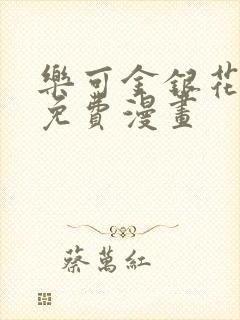 樂可金銀花
免費漫畫
蔡萬紅